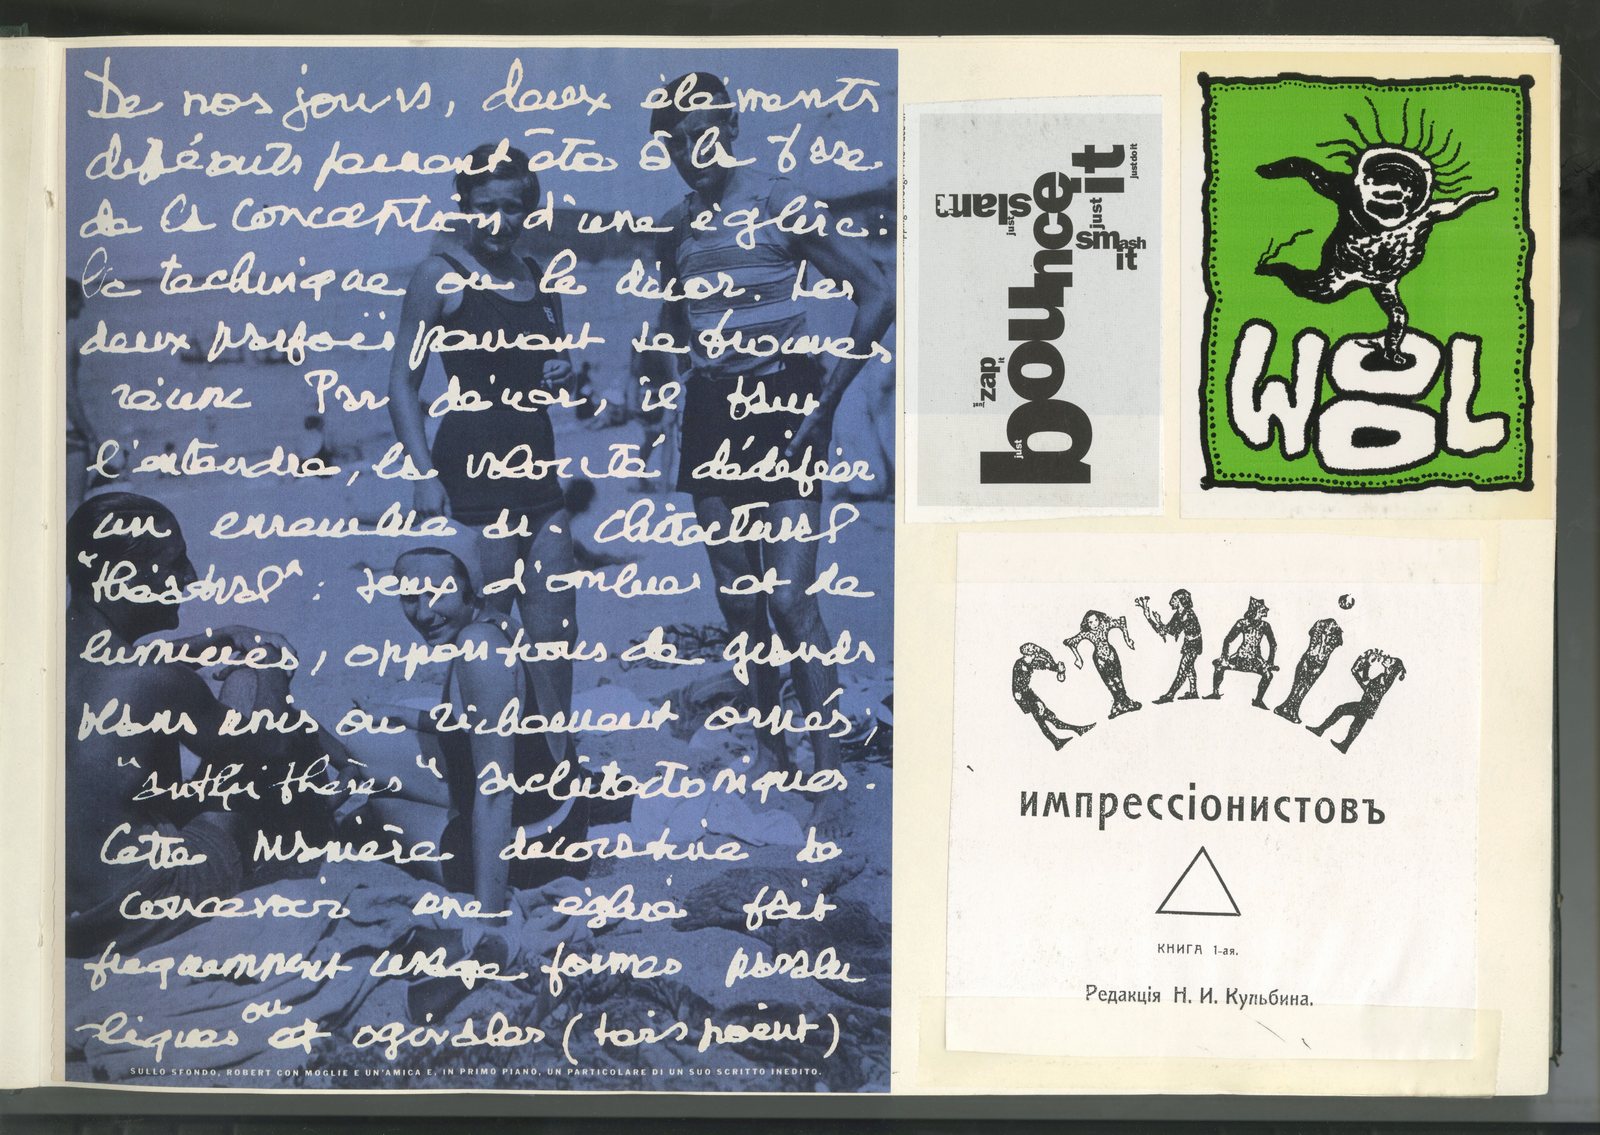 De nos jours, deux éléments
différents peuvent être à la base
de la conception d'une église:
la technique ou le décor. Les
deux parfois peuvent se trouver
réunis Par décor, il faut
l'entendre, la volonté d'édifier
un ensemble ar-chitectural
"théâtral": jeux d'ombres et de
lumières, oppositions de grands
plans unis ou richement ornés;
architectoniques.
Cette manière décorative de
concevoir une église fait
fréquemment usage formes parabo
liques ou et ogivales (tiers point)
SULLO SFONDO, ROBERT CON MOGLIE E UN'AMICA E, IN PRIMO PIANO, UN PARTICOLARE DI UN SUO SCRITTO INEDITO.
just bounce it
just slam it
just smash it
just zap it
just do it
WOOL
СТУДІЯ
импрессіонистовъ
КНИГА 1-ая.
Редакція Н. И. Кульбина.